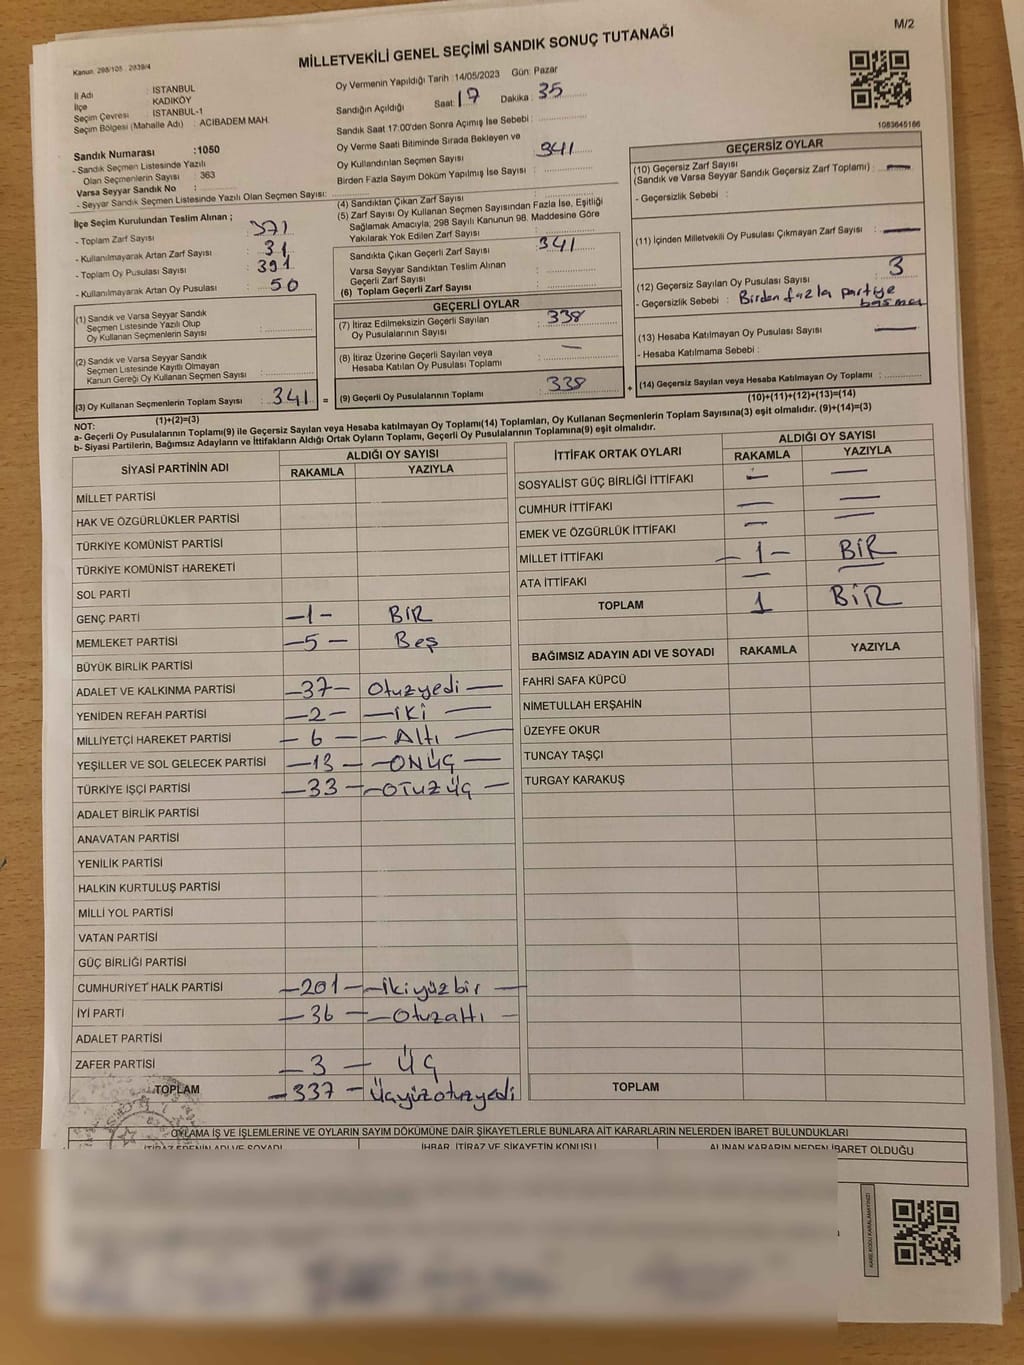 M/2
MİLLETVEKİLİ GENEL SEÇİMİ SANDIK SONUÇ TUTANAĞI
Kanun. 298/105 . 2839/4
İl Adı : İSTANBUL
İlçe : KADIKÖY
Seçim Çevresi : İSTANBUL-1
Seçim Bölgesi (Mahalle Adı) : ACIBADEM MAH.
Sandık Numarası :1050
- Sandık Seçmen Listesinde Yazılı
Olan Seçmenlerin Sayısı : 363
Varsa Seyyar Sandık No :
- Seyyar Sandık Seçmen Listesinde Yazılı Olan Seçmen Sayısı:
Oy Vermenin Yapıldığı Tarih : 14/05/2023 Gün: Pazar
Sandığın Açıldığı Saat: 17 Dakika : 35
Sandık Saat 17:00'den Sonra Açımış İse Sebebi :
Oy Verme Saati Bitiminde Sırada Bekleyen ve
Oy Kullandırılan Seçmen Sayısı : 341
Birden Fazla Sayım Döküm Yapılmış İse Sayısı :
1083645166
İlçe Seçim Kurulundan Teslim Alınan ;
- Toplam Zarf Sayısı : 371
- Kullanılmayarak Artan Zarf Sayısı : 31
- Toplam Oy Pusulası Sayısı : 391
- Kullanılmayarak Artan Oy Pusulası : 50
(1) Sandık ve Varsa Seyyar Sandık
Seçmen Listesinde Yazılı Olup
Oy Kullanan Seçmenlerin Sayısı :
(2) Sandık ve Varsa Seyyar Sandık
Seçmen Listesinde Kayıtlı Olmayan
Kanun Gereği Oy Kullanan Seçmen Sayısı :
(3) Oy Kullanan Seçmenlerin Toplam Sayısı : 341 =
(1)+(2)=(3)
(4) Sandıktan Çıkan Zarf Sayısı :
(5) Zarf Sayısı Oy Kullanan Seçmen Sayısından Fazla İse, Eşitliği
Sağlamak Amacıyla; 298 Sayılı Kanunun 98. Maddesine Göre
Yakılarak Yok Edilen Zarf Sayısı :
Sandıkta Çıkan Geçerli Zarf Sayısı : 341
Varsa Seyyar Sandıktan Teslim Alınan
Geçerli Zarf Sayısı :
(6) Toplam Geçerli Zarf Sayısı :
GEÇERLİ OYLAR
(7) İtiraz Edilmeksizin Geçerli Sayılan
Oy Pusulalarının Sayısı : 338
(8) İtiraz Üzerine Geçerli Sayılan veya
Hesaba Katılan Oy Pusulası Toplamı : —
(9) Geçerli Oy Pusulalarının Toplamı : 338 +
GEÇERSİZ OYLAR
(10) Geçersiz Zarf Sayısı
(Sandık ve Varsa Seyyar Sandık Geçersiz Zarf Toplamı) : —
- Geçersizlik Sebebi :
(11) İçinden Milletvekili Oy Pusulası Çıkmayan Zarf Sayısı : —
(12) Geçersiz Sayılan Oy Pusulası Sayısı : 3
- Geçersizlik Sebebi : Birden fazla partiye
basması
(13) Hesaba Katılmayan Oy Pusulası Sayısı : —
- Hesaba Katılmama Sebebi :
(14) Geçersiz Sayılan veya Hesaba Katılmayan Oy Toplamı :
(10)+(11)+(12)+(13)=(14)
NOT:
a- Geçerli Oy Pusulalarının Toplamı(9) ile Geçersiz Sayılan veya Hesaba katılmayan Oy Toplamı(14) Toplamları, Oy Kullanan Seçmenlerin Toplam Sayısına(3) eşit olmalıdır. (9)+(14)=(3)
b- Siyasi Partilerin, Bağımsız Adayların ve İttifakların Aldığı Ortak Oyların Toplamı, Geçerli Oy Pusulalarının Toplamına(9) eşit olmalıdır.
SİYASİ PARTİNİN ADI ALDIĞI OY SAYISI
RAKAMLA YAZIYLA
MİLLET PARTİSİ
HAK VE ÖZGÜRLÜKLER PARTİSİ
TÜRKİYE KOMÜNİST PARTİSİ
TÜRKİYE KOMÜNİST HAREKETİ
SOL PARTİ
GENÇ PARTİ —1— BİR
MEMLEKET PARTİSİ —5— Beş
BÜYÜK BİRLİK PARTİSİ
ADALET VE KALKINMA PARTİSİ —37— Otuzyedi —
YENİDEN REFAH PARTİSİ —2— —iki —
MİLLİYETÇİ HAREKET PARTİSİ —6— —Altı —
YEŞİLLER VE SOL GELECEK PARTİSİ —13— —ONÜÇ —
TÜRKİYE İŞÇİ PARTİSİ —33— —OTUZÜÇ —
ADALET BİRLİK PARTİSİ
ANAVATAN PARTİSİ
YENİLİK PARTİSİ
HALKIN KURTULUŞ PARTİSİ
MİLLİ YOL PARTİSİ
VATAN PARTİSİ
GÜÇ BİRLİĞİ PARTİSİ
CUMHURİYET HALK PARTİSİ —201— —ikiyüzbir —
İYİ PARTİ —36— —Otuzaltı —
ADALET PARTİSİ
ZAFER PARTİSİ —3— ÜÇ
TOPLAM —337— Üçyüzotuzyedi
İTTİFAK ORTAK OYLARI ALDIĞI OY SAYISI
RAKAMLA YAZIYLA
SOSYALİST GÜÇ BİRLİĞİ İTTİFAKI — —
CUMHUR İTTİFAKI — —
EMEK VE ÖZGÜRLÜK İTTİFAKI — —
MİLLET İTTİFAKI —1— BİR
ATA İTTİFAKI — —
TOPLAM 1 BİR
BAĞIMSIZ ADAYIN ADI VE SOYADI RAKAMLA YAZIYLA
FAHRİ SAFA KÜPCÜ
NİMETULLAH ERŞAHİN
ÜZEYFE OKUR
TUNCAY TAŞÇI
TURGAY KARAKUŞ
TOPLAM
OYLAMA İŞ VE İŞLEMLERİNE VE OYLARIN SAYIM DÖKÜMÜNE DAİR ŞİKAYETLERLE BUNLARA AİT KARARLARIN NELERDEN İBARET BULUNDUKLARI
İTİRAZ EDENİN ADI VE SOYADI İHBAR, İTİRAZ VE ŞİKAYETİN KONUSU ALINAN KARARIN NEDEN İBARET OLDUĞU
KARE KODU KARALAMAYINIZ!